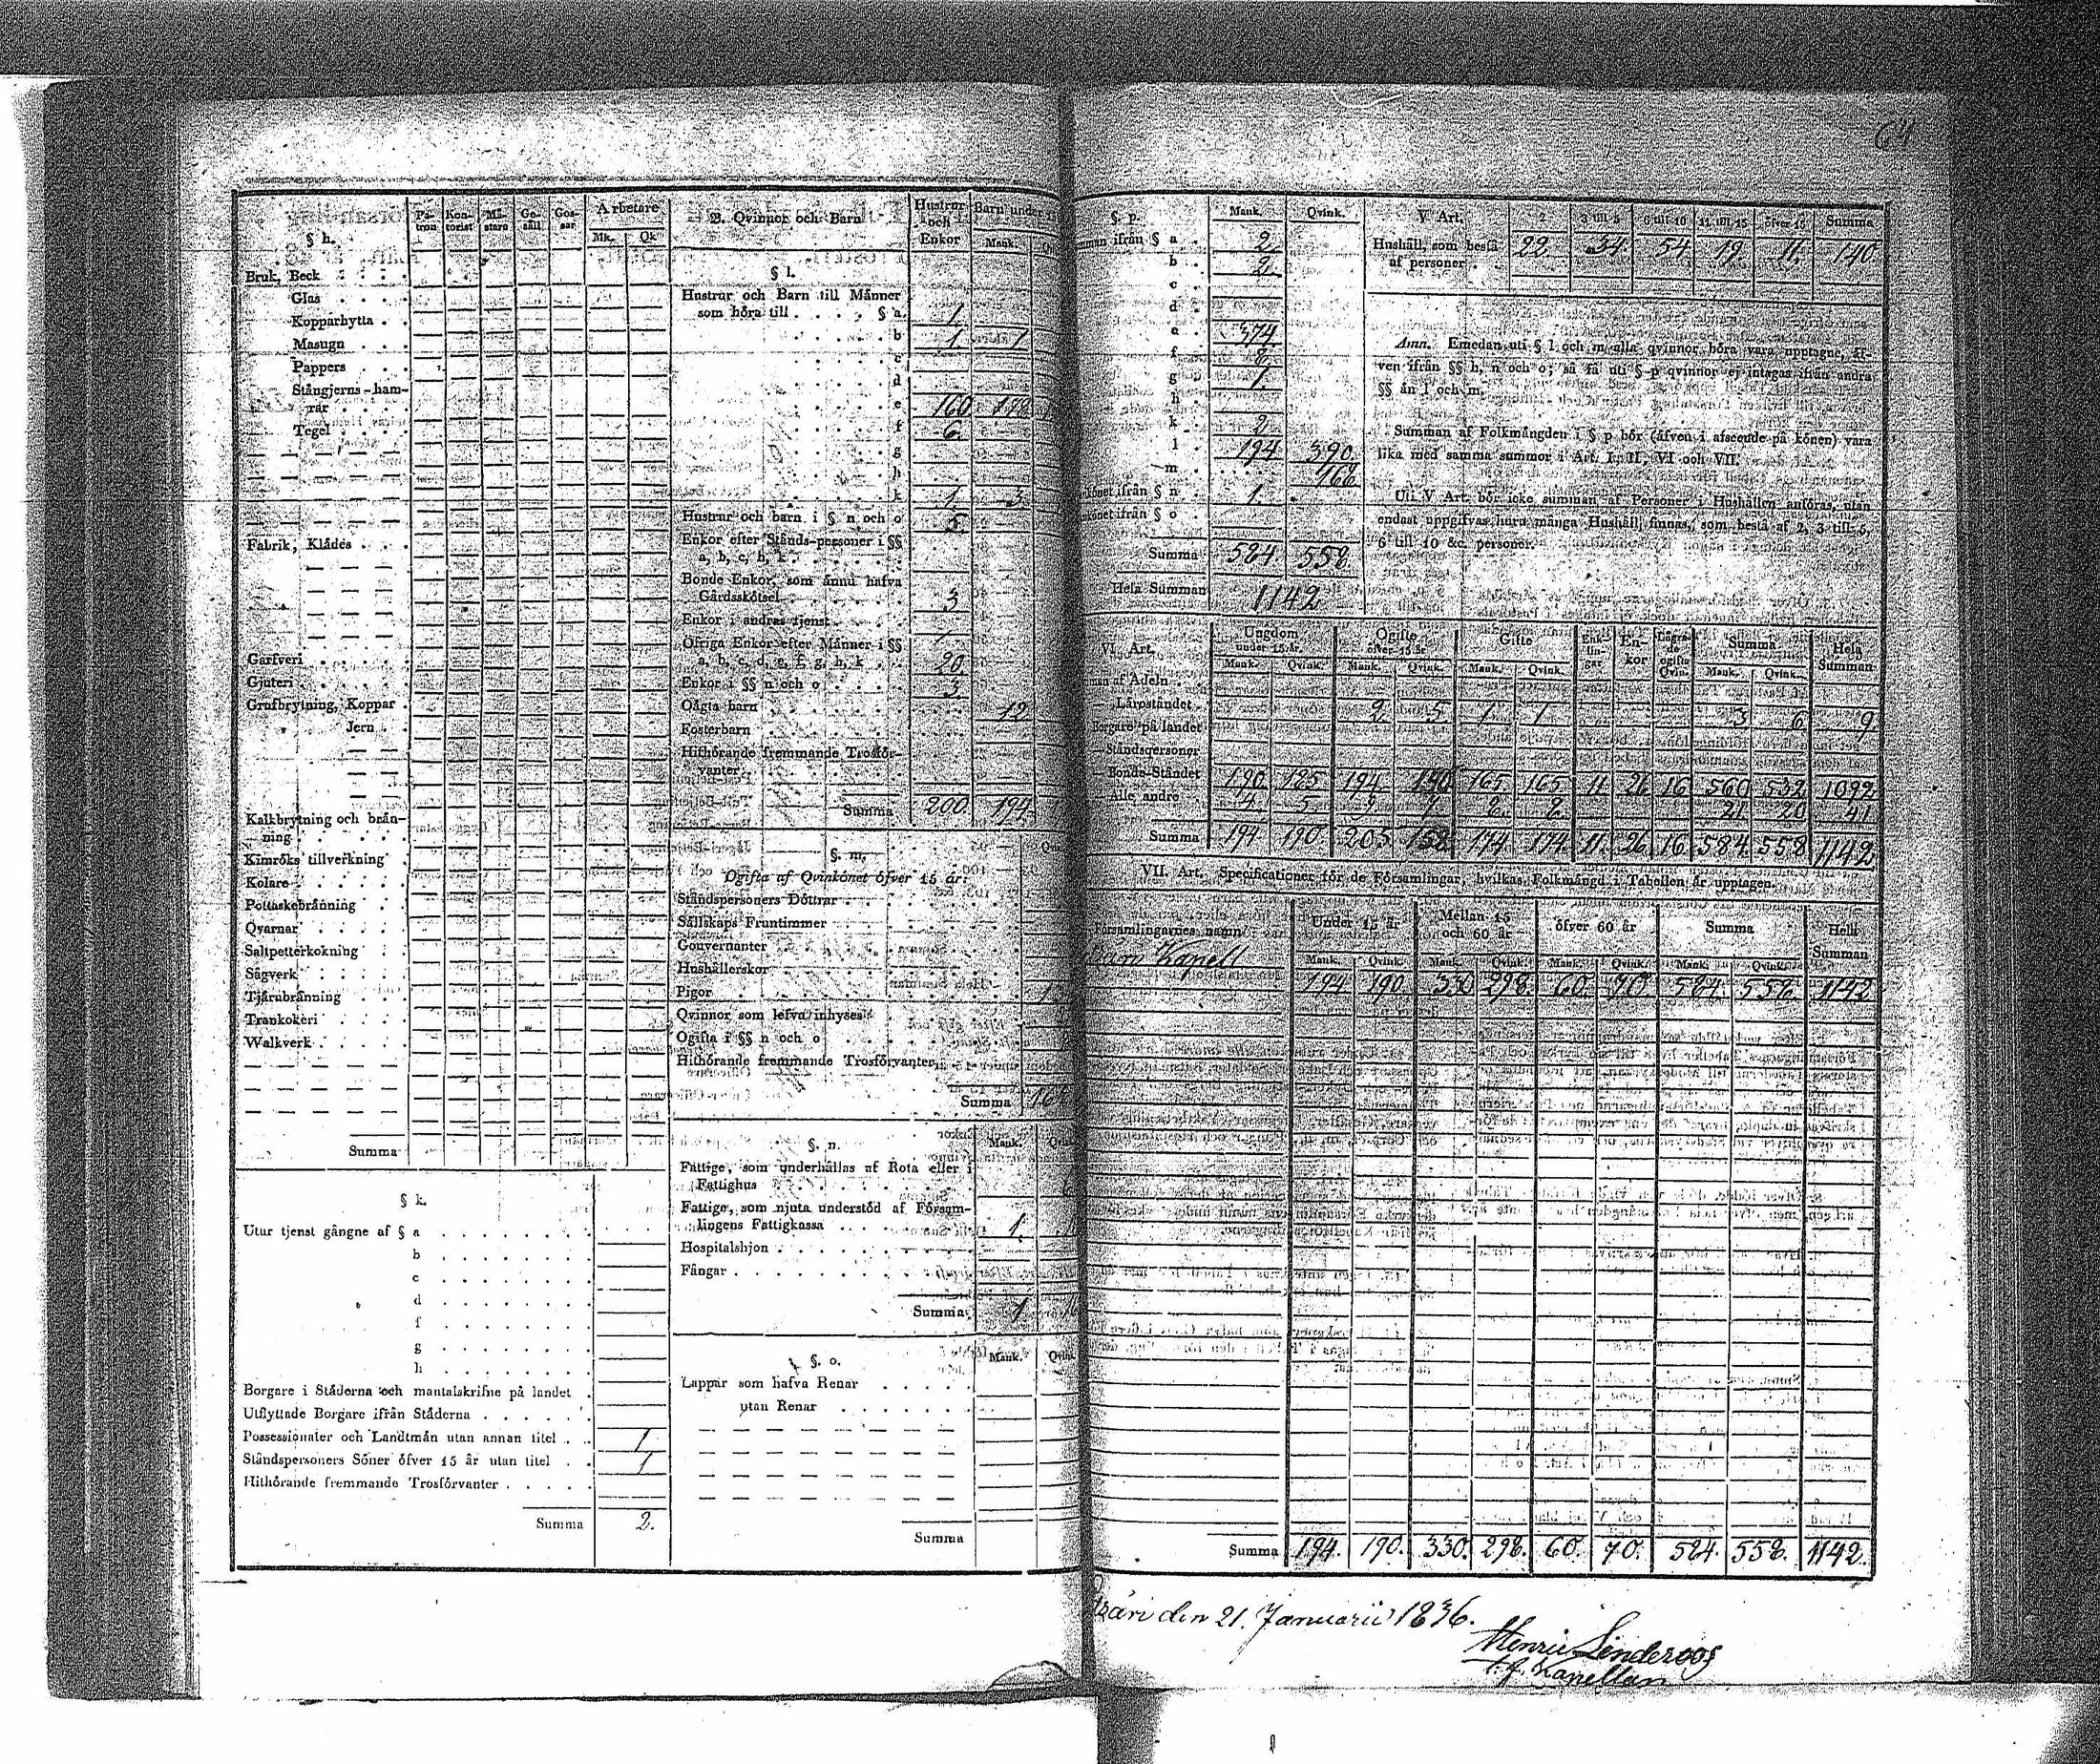 64
§ h.
Pa-tron Kon-torist Mä-stare Ge-säll Gos-sar Arbetare
Mk. Qk
Bruk, Beck
Glas
Kopparhytta
Masugn
Pappers
Stångjerns-ham-
rar
Tegel
Fabrik, Klådes
Garfveri
Gjuteri
Grufbrytning, Koppar
Jern
Kalkbrytning och brån-
ning
Kimröks tillverkning
Kolare
Pottaskebrånning
Qvarnar
Saltpetterkokning
Sågverk
Tjårubrånning
Trankokeri
Walkverk
Summa
§ k.
Utur tjenst gångne af § a
b
c
d
f
g
h
Borgare i Ståderna och mantalskrifne på landet
Utflyttade Borgare ifrån Ståderna
Possessionater och Landtmån utan annan titel 1
Ståndspersoners Söner öfver 15 år utan titel 1
Hithörande fremmande Trosförvanter
Summa 2.
B. Qvinnor och Barn
Hustrur och Enkor Barn under
Mank.
§ l.
Hustrur och Barn till Männer
som höra till § a 1
b 1 1
c
d
e 160 178
f 6
g
h
k 1 3
Hustrur och barn i § n och o 5
Enkor efter Stånds-personer i §§
a, b, c, h, k
Bonde Enkor, som ännu hafva
Gårdsskötsel 3
Enkor i andras tjenst
Öfriga Enkor efter Männer i §§
a, b, c, d, e, f, g, h, k 20
Enkor i §§ n och o 3
Oågta barn 12
Fosterbarn
Hithörande fremmande Trosför-
vanter
Summa 200 194
§. m.
Ogifta af Qvinkönet öfver 15 år:
Ståndspersoners Döttrar
Sällskaps Fruntimmer
Gouvernanter
Hushållerskor
Pigor
Qvinnor som lefva inhyses
Ogifta i §§ n och o
Hithörande fremmande Trosförvanter
Summa
§. n.
Mank.
Fattige, som underhållas af Rota eller i
Fattighus
Fattige, som njuta understöd af Försam-
lingens Fattigkassa 1.
Hospitalshjon
Fångar
Summa 1
§. o.
Mank.
Lappar som hafva Renar
utan Renar
Summa
§. p. Mank. Qvink.
ifrån § a 2
b 2
c
d
e 374
f 8
g 1.
h
k 2
l 194 390
m 168
ifrån § n 1.
ifrån § o
Summa 584 558
Hela Summan 1142
V Art. 2 3 till 5 6 till 10 11 till 15 öfver 15 Summa
Hushåll, som bestå
af personer 22 34. 54 19. 11. 140
Anm. Emedan uti § l och m alla qvinnor böra vara upptagne, äf-
ven ifrån §§ h, n och o; så få uti § p qvinnor ej intagas ifrån andra
§§ än l och m.
Summan af Folkmängden i § p bör (äfven i afseende på könen) vara
lika med samma summor i Art. I, II, VI och VII.
Uti V Art. bör icke summan af Personer i Hushållen anföras, utan
endast uppgifvas huru många Hushåll finnas, som bestå af 2, 3 till 5,
6 till 10 &c. personer.
VI. Art. Ungdom under 15 år. Ogifte öfver 15 år Gifte Enk-lin-gar En-kor Lägra-de ogifte Qvin. Summa Hela Summan
Mank. Qvink. Mank. Qvink. Mank. Qvink. Mank. Qvink.
af Adeln
Läroståndet 2 5 1 1 3 6 9
Borgare på landet
Ståndspersoner
Bonde-Ståndet 190 185 194 146 165 165 11 26 16 560 532 1092
Alle andre 4 5 9 7 8 8 21 20 41
Summa 194 190 205 158 174 174 11. 26 16 584 558 1142
VII. Art. Specificationer för de Församlingar, hvilkas Folkmängd i Tabellen är upptagen.
Församlingarnes namn Under 15 år Mellan 15 och 60 år öfver 60 år Summa Hela Summan
Mank. Qvink. Mank. Qvink. Mank. Qvink. Mank. Qvink.
Kapell 194 190 330 298 60. 70. 584. 558. 1142
Summa 194. 190. 330. 298. 60. 70. 584. 558. 1142.
den 21. Januarii 1836.
Henric Linderoos
t.f. Kapellan